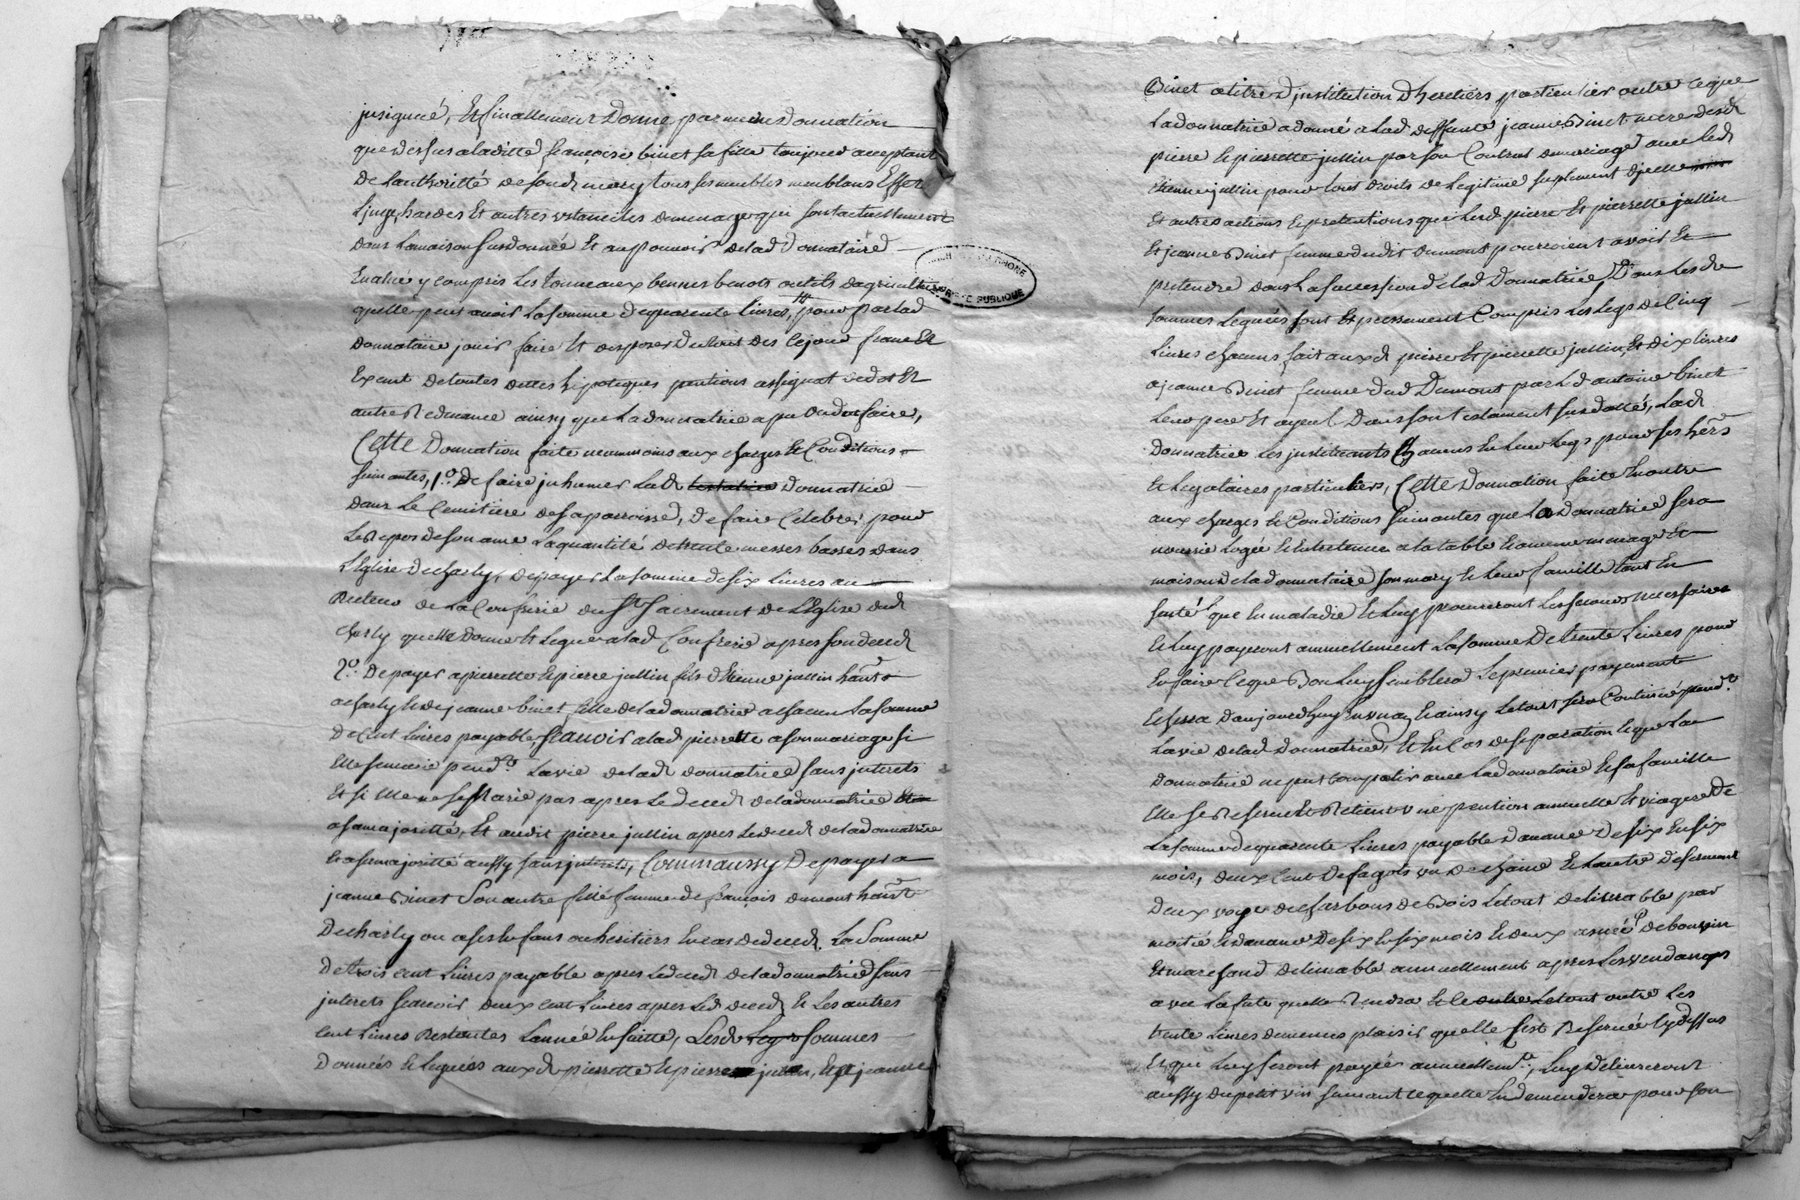 jusignué, Et finallement Donne par mesme donnation
que dessus a laditte francoise binet sa fille toujours acceptant
de lauthoritté de sond mary tous ses meubles meublans Effets
Linge hardes Et autres ustanciles demenage qui sont actuellement
dans la maison susdonnée Et au pouvoir delad Donnatairé
Evalué y compris les tonneaux bennes benots outils dagriculture
quelle peut avoir la somme de quarente livres, pour par lad
donnataire jouir faire Et disposer du tout des ce jour franc Et
Exempt de toutes dettes hipoteques pentions assignat de dot Et
autre Redevance ainsy que la donnatrice a pu ou du faire,
Cette Donnation faite neanmoins aux charges Et Conditions
suivantes, 1.° De faire inhumer lad testatrice donnatrice
dans le Cemitiere de sa parroisse, de faire Celebrer pour
le Repos de son ame la quantité de trente messes basses dans
L'Eglise de charly, de payer la somme de six livres au
Recteur de la Confrerie du St Sacrement de L'Eglise dud
charly quelle donne Et legue a lad Confrerie apres son deced
2.° De payer a pierrette Et pierre jullin fils d'Etienne jullin habt
a charly Et de jeanne binet fille de la donnatrice a chacun la somme
de Cent livres payable, scavoir a lad pierrette a son mariage si
Elle se marie pendt la vie delad donnatrice sans interets
Et si Elle ne se Marie pas apres le deced de la donnatrice
a sa majoritté, Et audit pierre jullin apres le deced de la donnatrice
Et a sa majoritté aussy sans interets, Comm aussy De payer a
jeanne Binet son autre fille femme de francois dumont habt
De charly ou a ses Enfans ou heritiers En cas de deced, La Somme
de trois cent livres payable apres le deced de la donnatrice sans
interets scavoir deux cent livres apres led deced Et les autres
cent livres Restantes Lannée En suitte, Lesd Legs sommes
Données Et leguées auxd pierrette Et pierre jullin, Et jeanne
Binet a titre D'institution D'heretiers particulier outre ce que
la donnatrice a donné a lad deffunte jeanne Binet mere desd
pierre Et pierrette jullin par son Contrat de mariage avec led
Etienne jullin pour tous Droits de Legitime suplement d'jcelle
Et autres actions Et pretentions que lesd pierre Et pierrette jullin
Et jeanne Binet femme dudit dumont pourroient avoir Et
pretendre dans la succession delad Donnatrice, Dans lesd
sommes leguées sont Expressement Compris les legs de Cinq
livres chacuns fait auxd pierre Et pierrette jullin, Et dix livres
a jeanne Binet femme dud Dumont par led antoine binet
leur pere Et ayeul Dans son testament susdatté, lad
donnatrice les instituants Chacuns En leur legs pour ses hers
Et legataires particuliers, Cette Donnation faite En outre
aux charges Et Conditions suivantes que la Donnatrice sera
nourrie logée Et Entretenue a la table Et a meme menage Et
maison de la donnataire son mary Et leur famille tant En
santé que En maladie Et luy procureront les secours necessaires
Et luy payeront annuellement la somme De trente livres pour
En faire Ceque Bon luy semblera le premier payement
Echerra daujourdhuy En un an Et ainsy le tout sera Continué pendt
la vie delad donnatrice, Et En Cas de separation Et que la
donnatrice ne put compatir avec lad donnataire Et sa famille
Elle se Reserve Et Retient une pention annuelle Et viagere De
la somme de quarente livres payable d'avance De six En six
mois, deux Cent de fagots un de chaine Et Lautre de serment
Deux voye de charbons de Bois le tout delivrable par
moitié Et davance De six En six mois Et deux asnée De bon vin
Et marchand delivrable annuellement apres les vendanges
avec la futs quelle Rendra Et le tout outre les
trente livres de menus plaisir quelle sest Reservée Cy dessus
Et qui luy seront payée annuellemt, Luy Delivreront
aussy du petit vin suivant ce quelle En demendera pour son